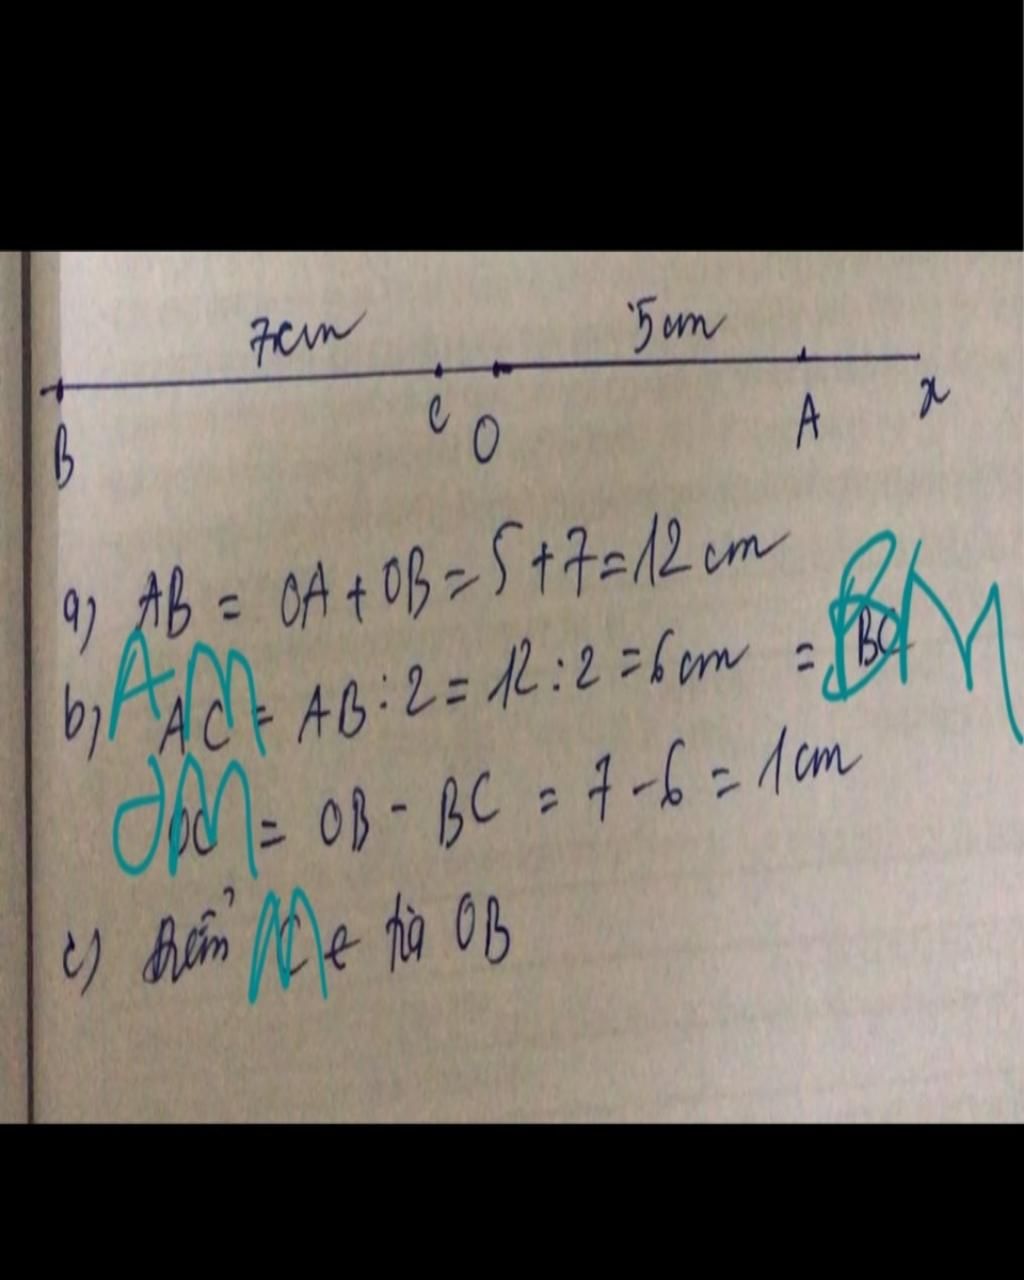 7cm 5cm
B C O A x
a) AB = OA + OB = 5 + 7 = 12 cm
b) AM AC = AB : 2 = 12 : 2 = 6 cm = BM BC
OM OC = OB - BC = 7 - 6 = 1 cm
c) Điểm M C ∈ tia OB